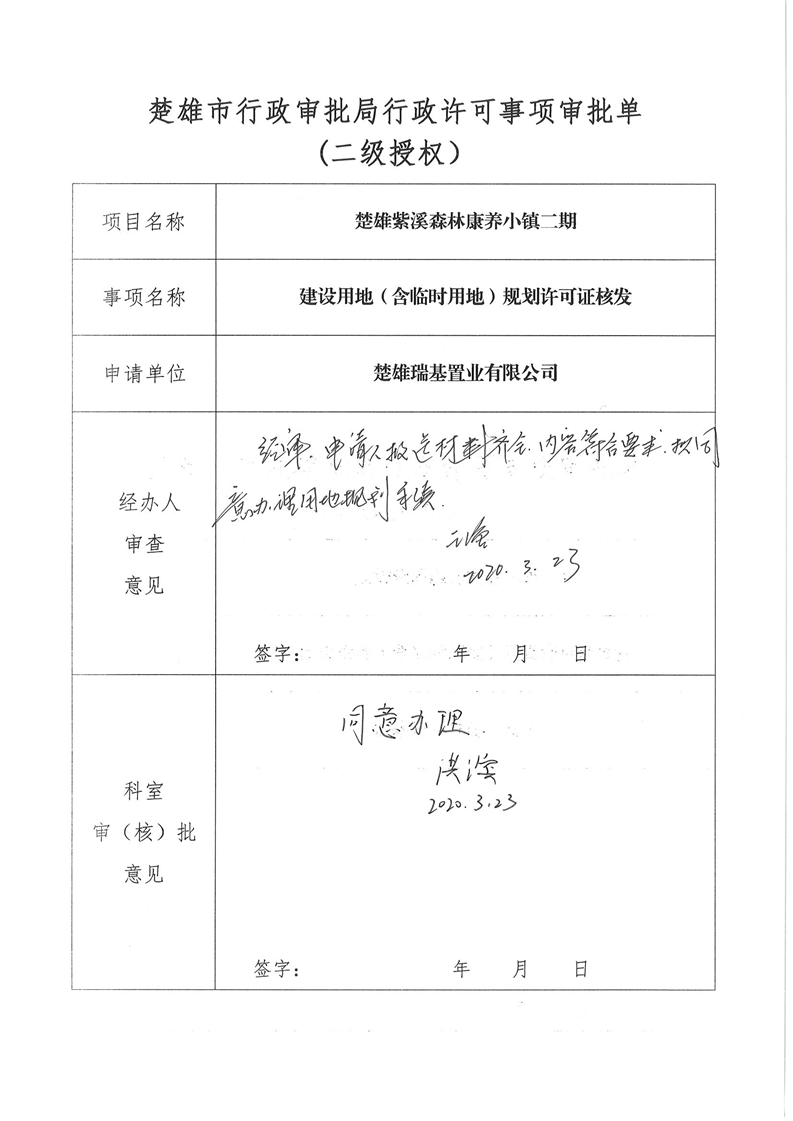 楚雄市行政审批局行政许可事项审批单
(二级授权)
项目名称
楚雄紫溪森林康养小镇二期
事项名称
建设用地(含临时用地)规划许可证核发
申请单位
楚雄瑞基置业有限公司
经办人
审查
意见
经审,申请人报送材料齐全,内容符合要求,拟同
意办理用地规划手续.
2020.3.23
签字: 年 月 日
科室
审(核)批
意见
同意办理.
洪滨
2020.3.23
签字: 年 月 日